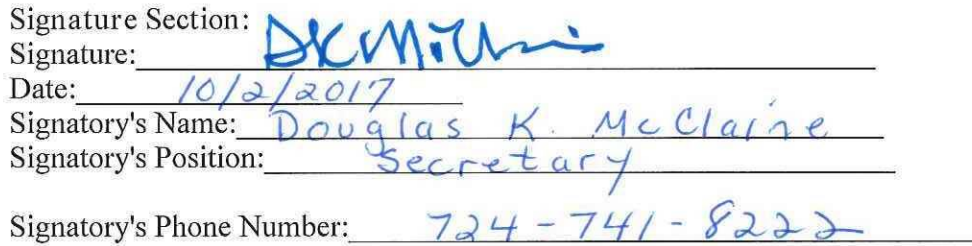 Signature Section:
Signature:
Date: 10/2/2017
Signatory's Name: Douglas K. McClaine
Signatory's Position: Secretary
Signatory's Phone Number: 724-741-8222